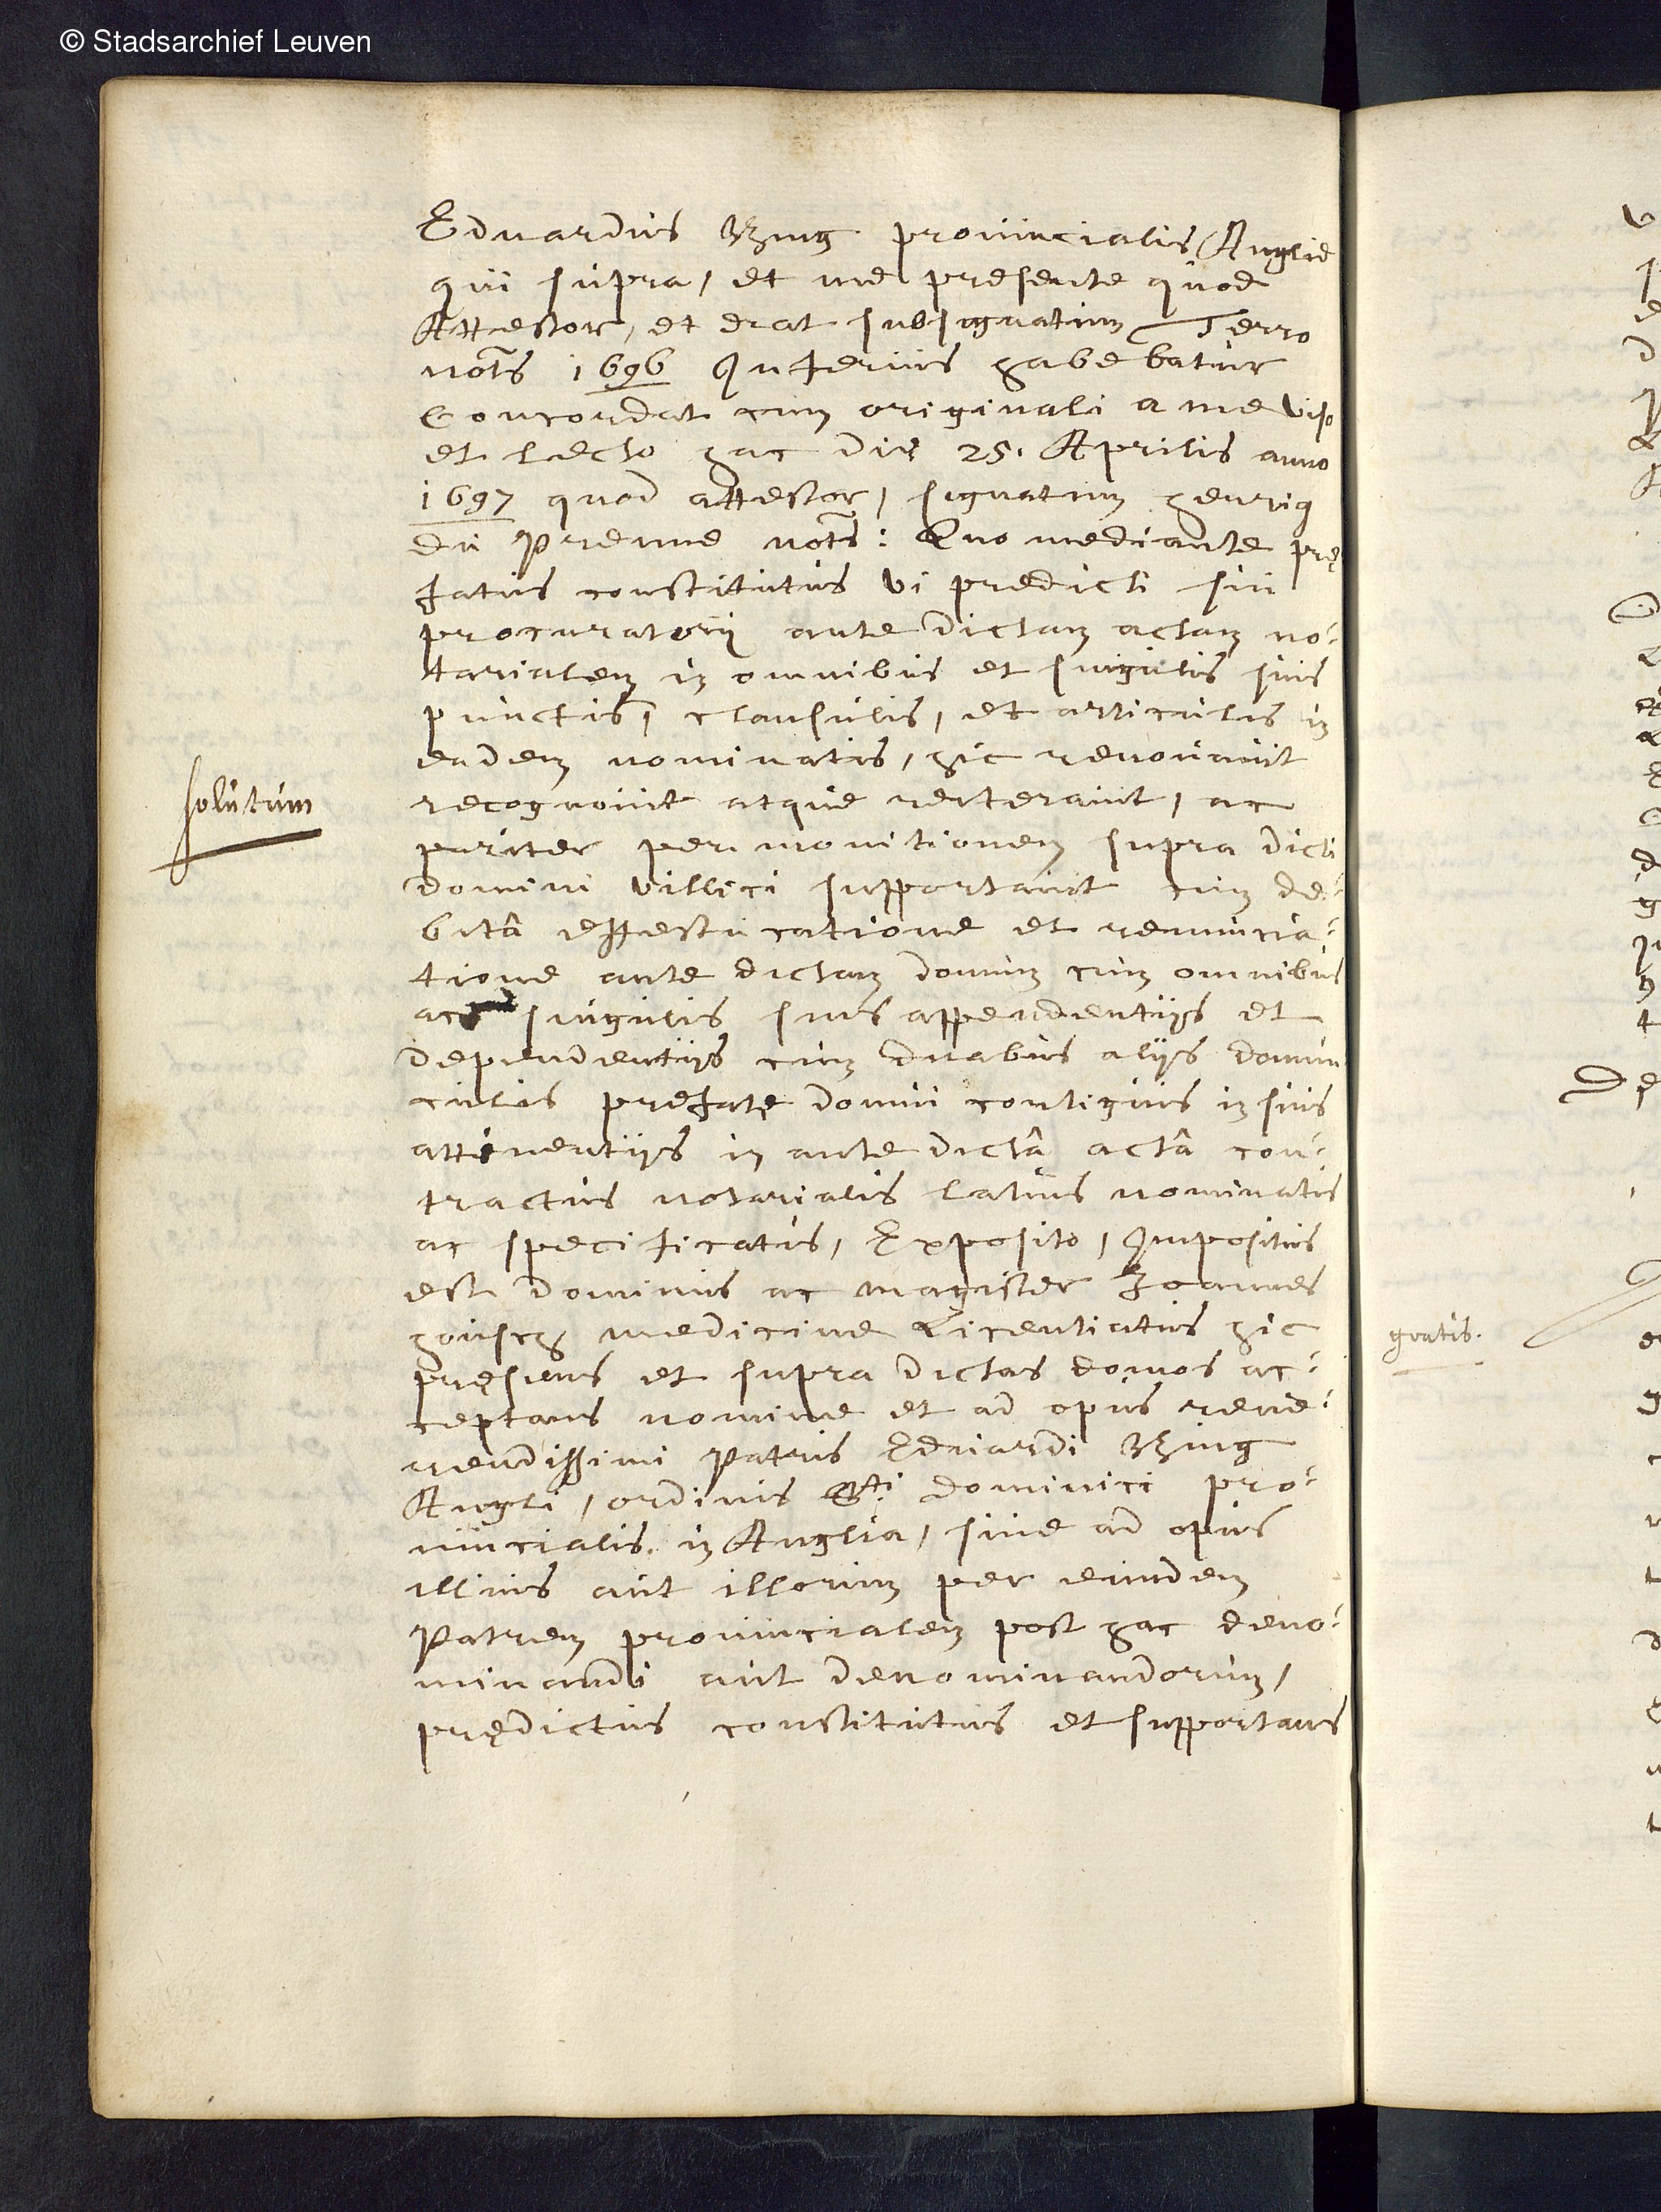 © Stadsarchief Leuven
Eduardus Bing prouincialis Anglie
qui supra, et me presente quod
Attestor, et erat subsignatum Terro
nots 1696 Inferius habebatur
Concordat cum originali a me viso
et lecto hac die 25. Aprilis anno
1697 quod attestor, signatum henrig
du Prenne nots: Quo mediante pre
fatus constitutus vi predicti sui
procuratorij ante dictam actam no-
tarialem in omnibus et singulis suis
punctis, clausulis, et articulis in
eadem nominatis, hic renouauit
recognouit atque reiterauit, ac
solutum
pariter per monitionem supra dicti
domini villici supportauit cum de-
bitâ effestucatione et renuncia-
tione ante dictam domum cum omnibus
ac singulis suis appendentijs et
dependentijs cum duabus alijs domun
culis prefatę domui contiguis in suis
attinentijs in ante dictâ actâ con-
tractus notarialis latius nominatis
ac specificatis, Exposito, Impositus
est dominus ac magister Joannes
housch medicine Licentiatus hic
pręsens et supra dictas domos ac-
ceptans nomine et ad opus reue-
rendissimi Patris Eduardi Bing
Angli, ordinis Sti dominici pro-
uincialis in Anglia, siue ad opus
illius aut illorum per eundem
Patrem prouincialem post hac deno-
minandi aut denominandorum,
prędictus constitutus et supportans
gratis.